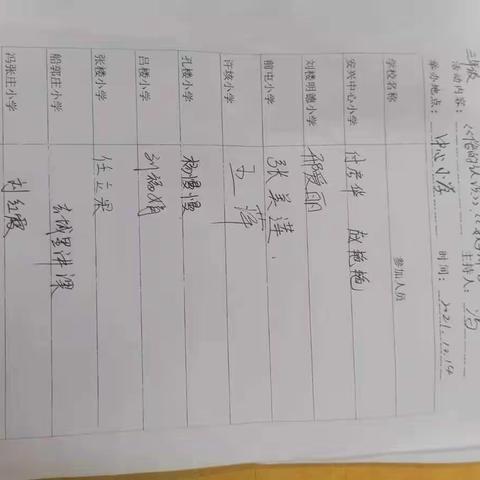 三年级
活动内容：《倍的认识》 主持人：冯
举办地点：中心小学 时间：2021.10.14
学校名称 参加人员
安兴中心小学 付彦华 赵艳艳
刘楼明德小学 邢爱丽
前屯小学 张美莲
许垓小学 王萍
孔楼小学 杨慢慢
吕楼小学 刘福娟
张楼小学 任立果
船郭庄小学 去俄里讲课
冯张庄小学 刘红霞